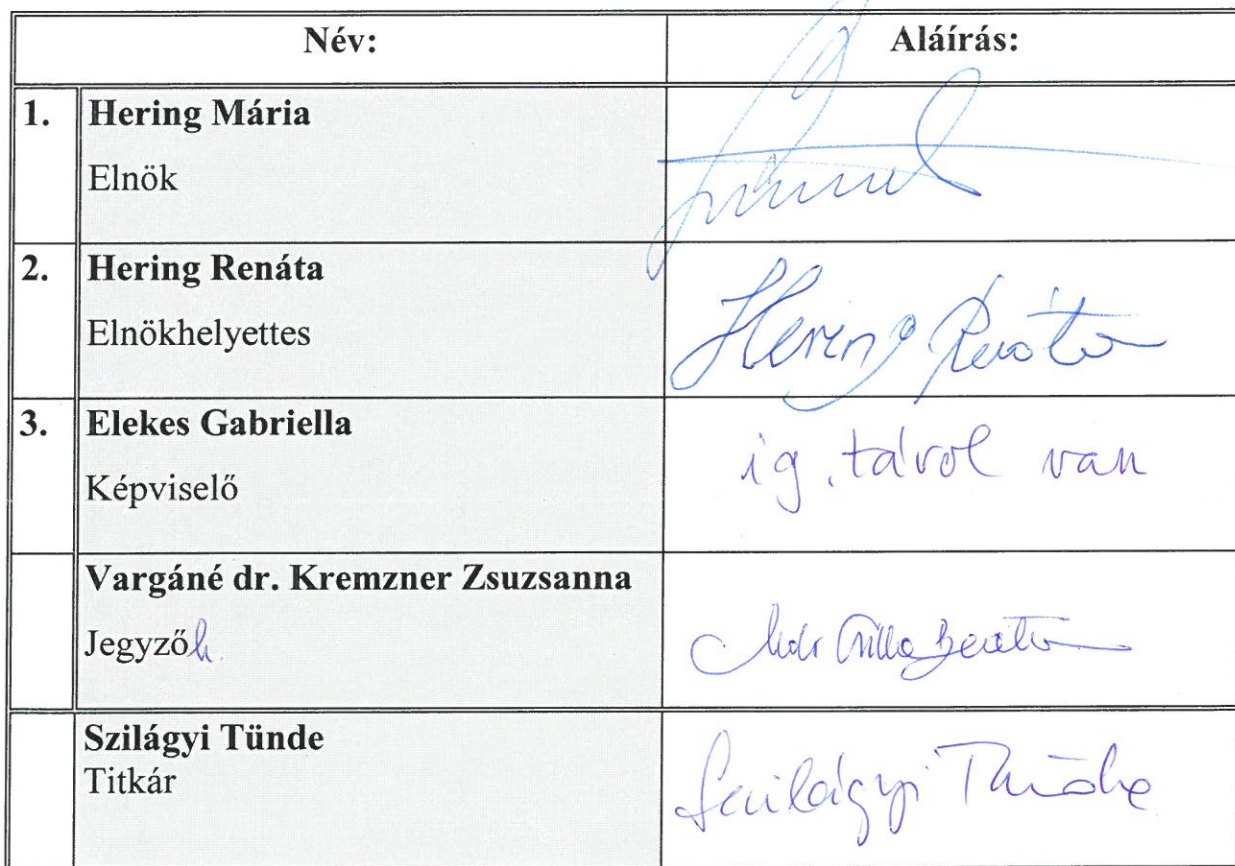 Név: Aláírás:
1. Hering Mária
Elnök
2. Hering Renáta
Elnökhelyettes
Hering Renáta
3. Elekes Gabriella
Képviselő
ig. távol van
Vargáné dr. Kremzner Zsuzsanna
Jegyző h.
Szilágyi Tünde
Titkár
Szilágyi Tünde